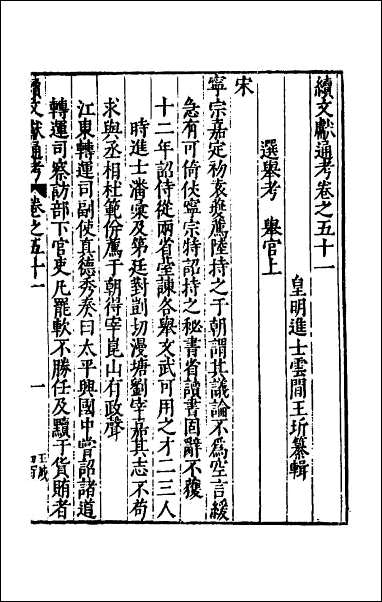 續文獻通考卷之五十一
皇明進士雲間王圻纂輯
選舉考 舉官上
宋
寧宗嘉定初袁燮薦陸持之于朝謂其議論不爲空言緩
急有可倚仗寧宗特詔持之秘書省讀書固辭不獲
十二年詔侍從兩省臺諫各舉文武可用之才二三人
時進士潘彙及第廷對剴切漫塘劉宰嘉其志不苟
求與丞相杜範份薦于朝得宰崑山有政聲
江東轉運司副使真德秀奏曰太平興國中嘗詔諸道
轉運司察訪部下官吏凡罷軟不勝任及黷于貨賄者
續文獻通考 卷之五十一
一